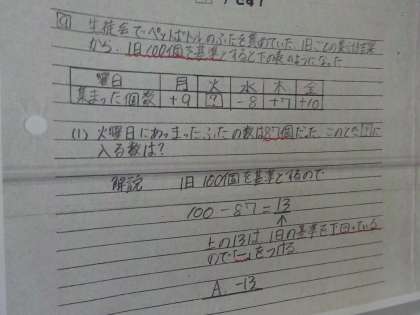 生徒会でペットボトルのふたを集めていた。1日ごとの集計結果
から、1日100個を基準とすると下の表のようになった
曜日 月 火 水 木 金
集まった個数 +9 ? -8 +7 +10
(1) 火曜日にあつまったふたの数は87個だった このとき?に
入る数は?
解説 1日100個を基準とするので
100-87=13
↑
上の13は1日の基準を下回っている
ので「-」をつける
A. -13